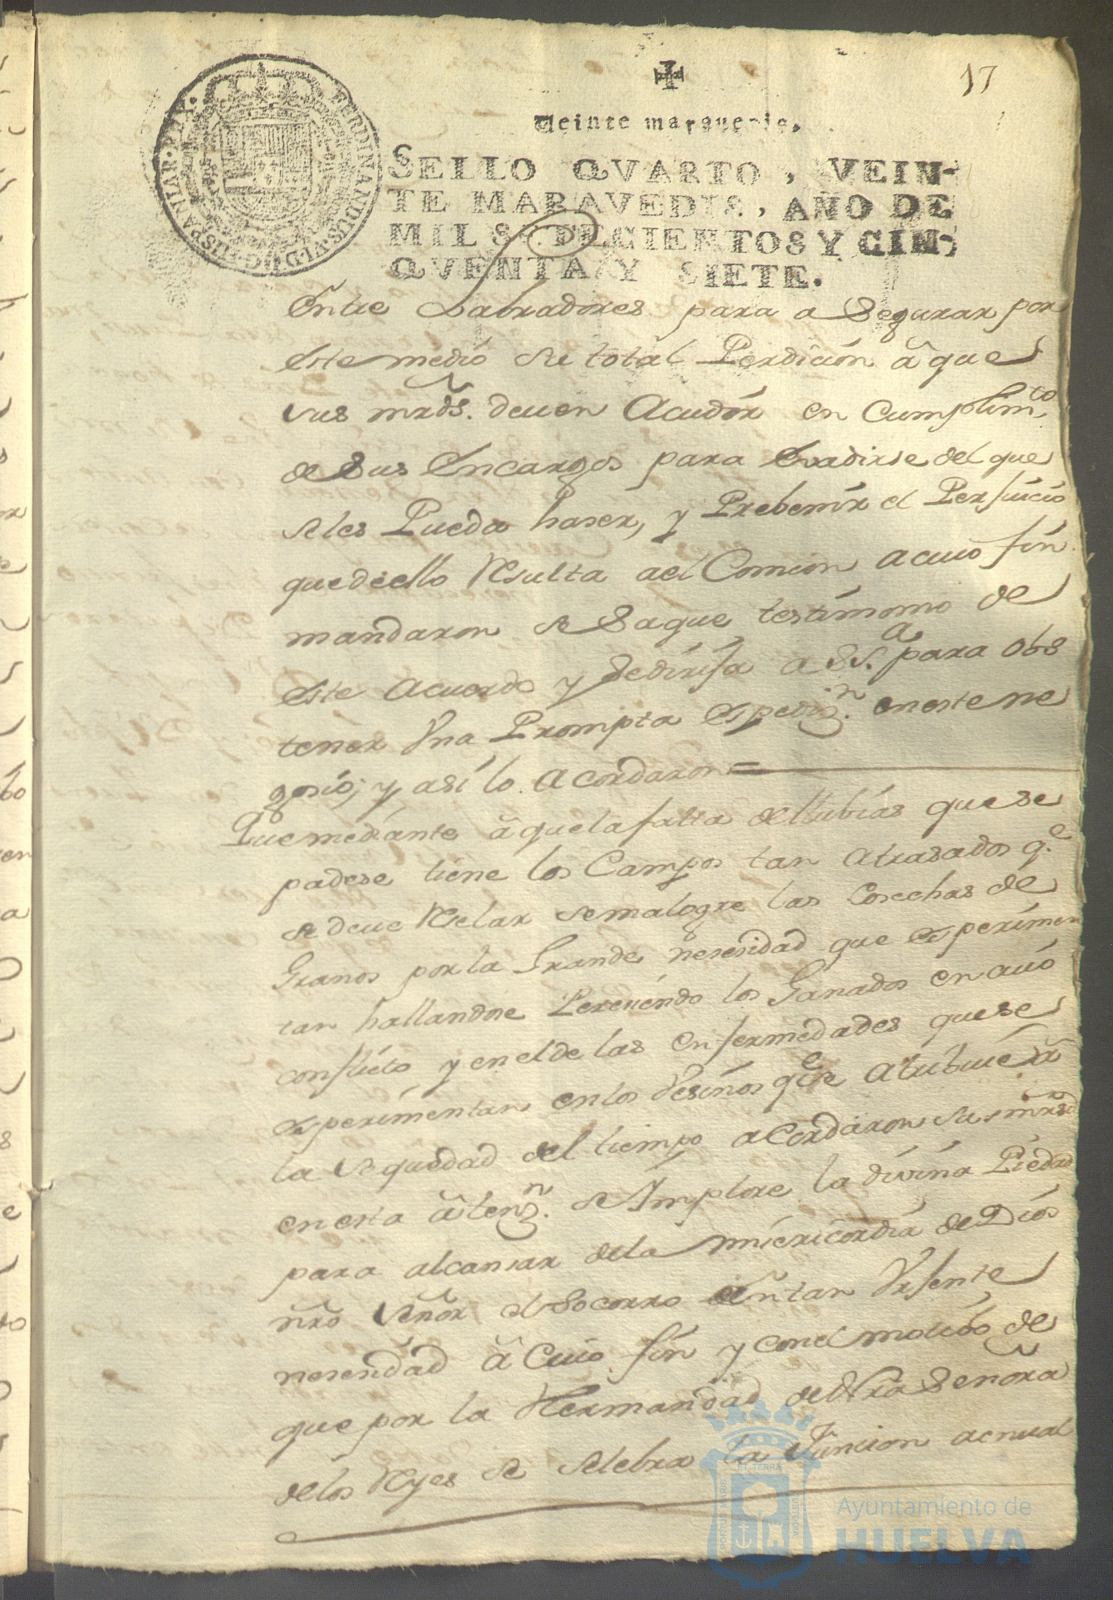 17
Veinte maravedis.
SELLO QVARTO, VEIN-
TE MARAVEDIS, AÑO DE
MIL SETECIENTOS Y CIN-
QVENTA Y SIETE.
FERDINANDUS·VI·D·G·HISPANIAR·REX·
Entre Labradores para a Segurar por
este medio su total Perdicion â que
sus mrds. deven Acudir en Cumplimto
de Sus Encargos para Evadirse del que
seles Pueda haser, y Prebenir el Perjuicio
quedeello Resulta ael Comun acuio fin
mandaron se Saque testimonio de
este Acuerdo y sedirija a SSa. para obs
tener Vna Prompta Espedizn. eneste ne
gosio; y asi lo acordaron =
Que mediante â quela falta dellubias quese
padese tiene los Campos tan atrasados qe.
se deve Reselar semalogre las Cosechas de
Granos por la Grande nesesidad que Esperimen
tan hallandose Pereciendo los Ganados en
conflicto y enelde las enfermedades quese
esperimentan enlos Vesinos qe se atribuie â
la Sequedad del tiempo acordaron Sus mrsd
en esta âtenzn. se Ymplore la divina Piedad
para alcansar dela misericordia de Dios
nro Señor el Socorro en tan Vrjente
nesesidad â Cuio fin y conel motibo de
que por la Hermandad de Nra Señora
delos Reyes se selebra la Funcion acnual
Ayuntamiento de
HUELVA